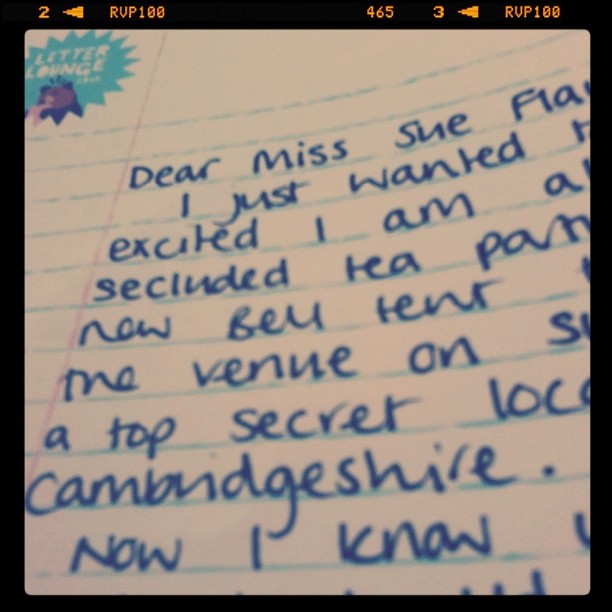 2 RVP100 465 3 RVP100
LETTER
LOUNGE
Dear Miss Sue Fla
I just wanted t
excited I am a
secluded tea par
new Bell tent
the venue on su
a top secret loca
Cambridgeshire.
Now I know